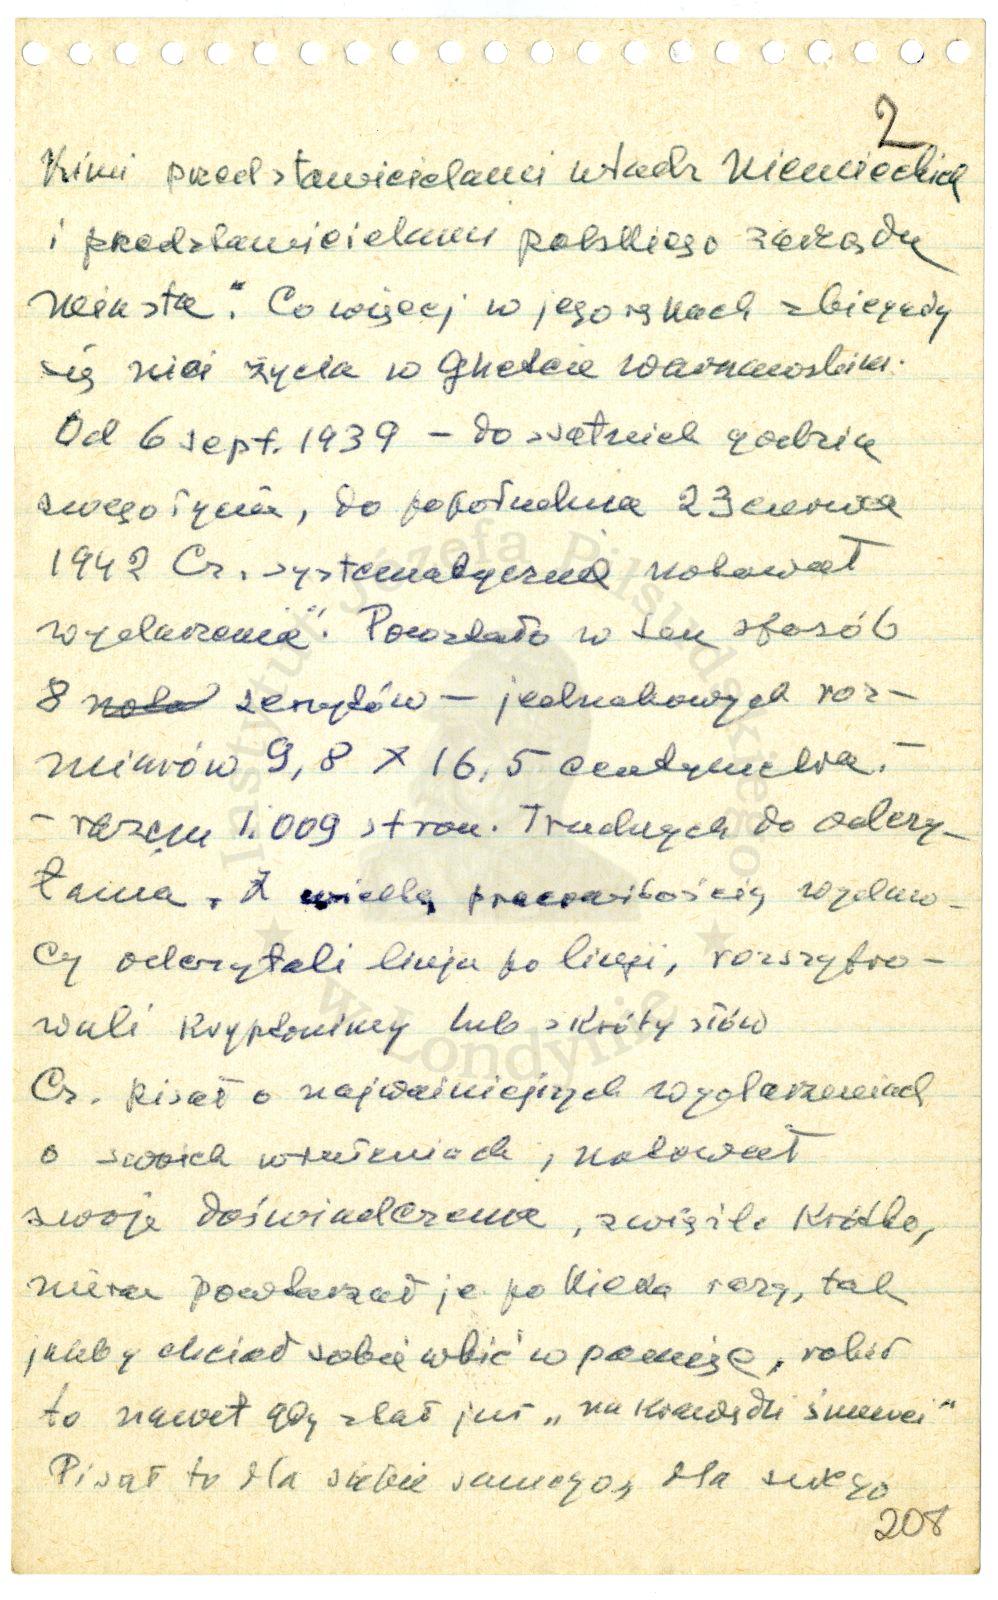 2
kimi przedstawicielami władz niemieckich
i przedstawicielami polskiego zarządu
miasta." Co więcej w jego rękach zbiegały
się nici życia w Ghetcie warszawskim.
Od 6 sept. 1939 – do ostatnich godzin
swego życia, do popołudnia 23 czerwca
1942 Cz. systematycznie notował
wydarzenia". Powstało w ten sposób
8 zeszytów – jednakowych roz-
miarów 9,8 X 16,5 centymetra. –
– razem 1.009 stron. Trudnych do odczy-
tania. Z wielką pracowitością wydaw-
cy odczytali linja po linji, rozszyfro-
wali kryptonimy lub skróty słów
Cz. pisał o najważniejszych wydarzeniach
o swoich wrażeniach, notował
swoje doświadczenia, zwięźle krótko,
nieraz powtarzał je po kilka razy, tak
jakby chciał sobie wbić w pamięć, robił
to nawet gdy stał już „na krawędzi śmierci"
Pisał to dla siebie samego, dla swego
208
Instytut Józefa Piłsudskiego
w Londynie